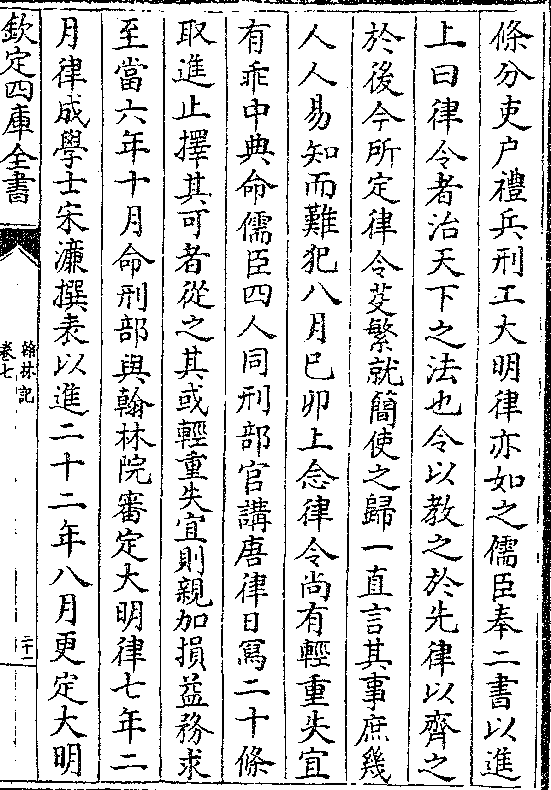 條分吏户禮兵刑工大明律亦如之儒臣奉二書以進
上曰律令者治天下之法也令以教之於先律以齊之
於後今所定律令芟繁就簡使之歸一直言其事庶幾
人人易知而難犯八月巳卯上念律令尚有輕重失宜
有乖中典命儒臣四人同刑部官講唐律日寫二十條
取進止擇其可者從之其或輕重失宜則親加損益務求
至當六年十月命刑部與翰林院審定大明律七年二
月律成學士宋濂撰表以進二十二年八月更定大明
欽定四庫全書
翰林記
卷七
二十一